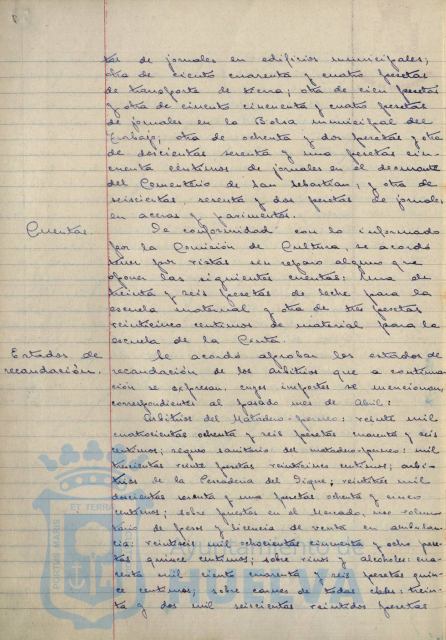 tas de jornales en edificios municipales;
otra de ciento cuarenta y cuatro pesetas
de transporte de tierra; otra de cien pesetas
y otra de ciento cincuenta y cuatro pesetas
de jornales en la Bolsa municipal del
Trabajo; otra de ochenta y dos pesetas y otra
de doscientas setenta y una pesetas cin-
cuenta céntimos de jornales en el desmonte
del Cementerio de San Sebastian, y otra de
seiscientas, sesenta y dos pesetas de jornales
en aceras y pavimentos.
Cuentas. De conformidad con lo informado
por la Comisión de Cultura, se acordó
tener por vistas sin reparo alguno que
oponer las siguientes cuentas: Una de
treinta y seis pesetas de leche para la
escuela maternal y otra de tres pesetas
veinticinco centimos de material para la
escuela de la Cinta.
Estados de recaudación. Se acordó aprobar los estados de
recaudación de los árbitrios que a continua-
ción se expresan, cuyos importes se mencionan,
correspondientes al pasado mes de Abril:
Arbitrios del Matadero-porcuno: veinte mil
cuatrocientas ochenta y seis pesetas cuarenta y seis
centimos; reguro sanitario del matadero-porcuno: mil
trescientas veinte pesetas veinticinco centimos; arbi-
trios de la Pescaderia del Dique; veintitres mil
doscientas sesenta y una pesetas ochenta y cinco
centimos; sobre puestos en el Mercado, uso volun-
tario de pesos y licencia de venta en ambulan-
cia: veintiseis mil ochocientas cincuenta y ocho pese-
tas quince centimos; sobre vinos y alcoholes: cua-
renta mil ciento cuarenta y seis pesetas quin-
ce centimos; sobre carnes de todas clases: trein-
ta y dos mil seiscientas veintidos pesetas
PORTUS MARIS ET TERRAE
Ayuntamiento de
HUELVA